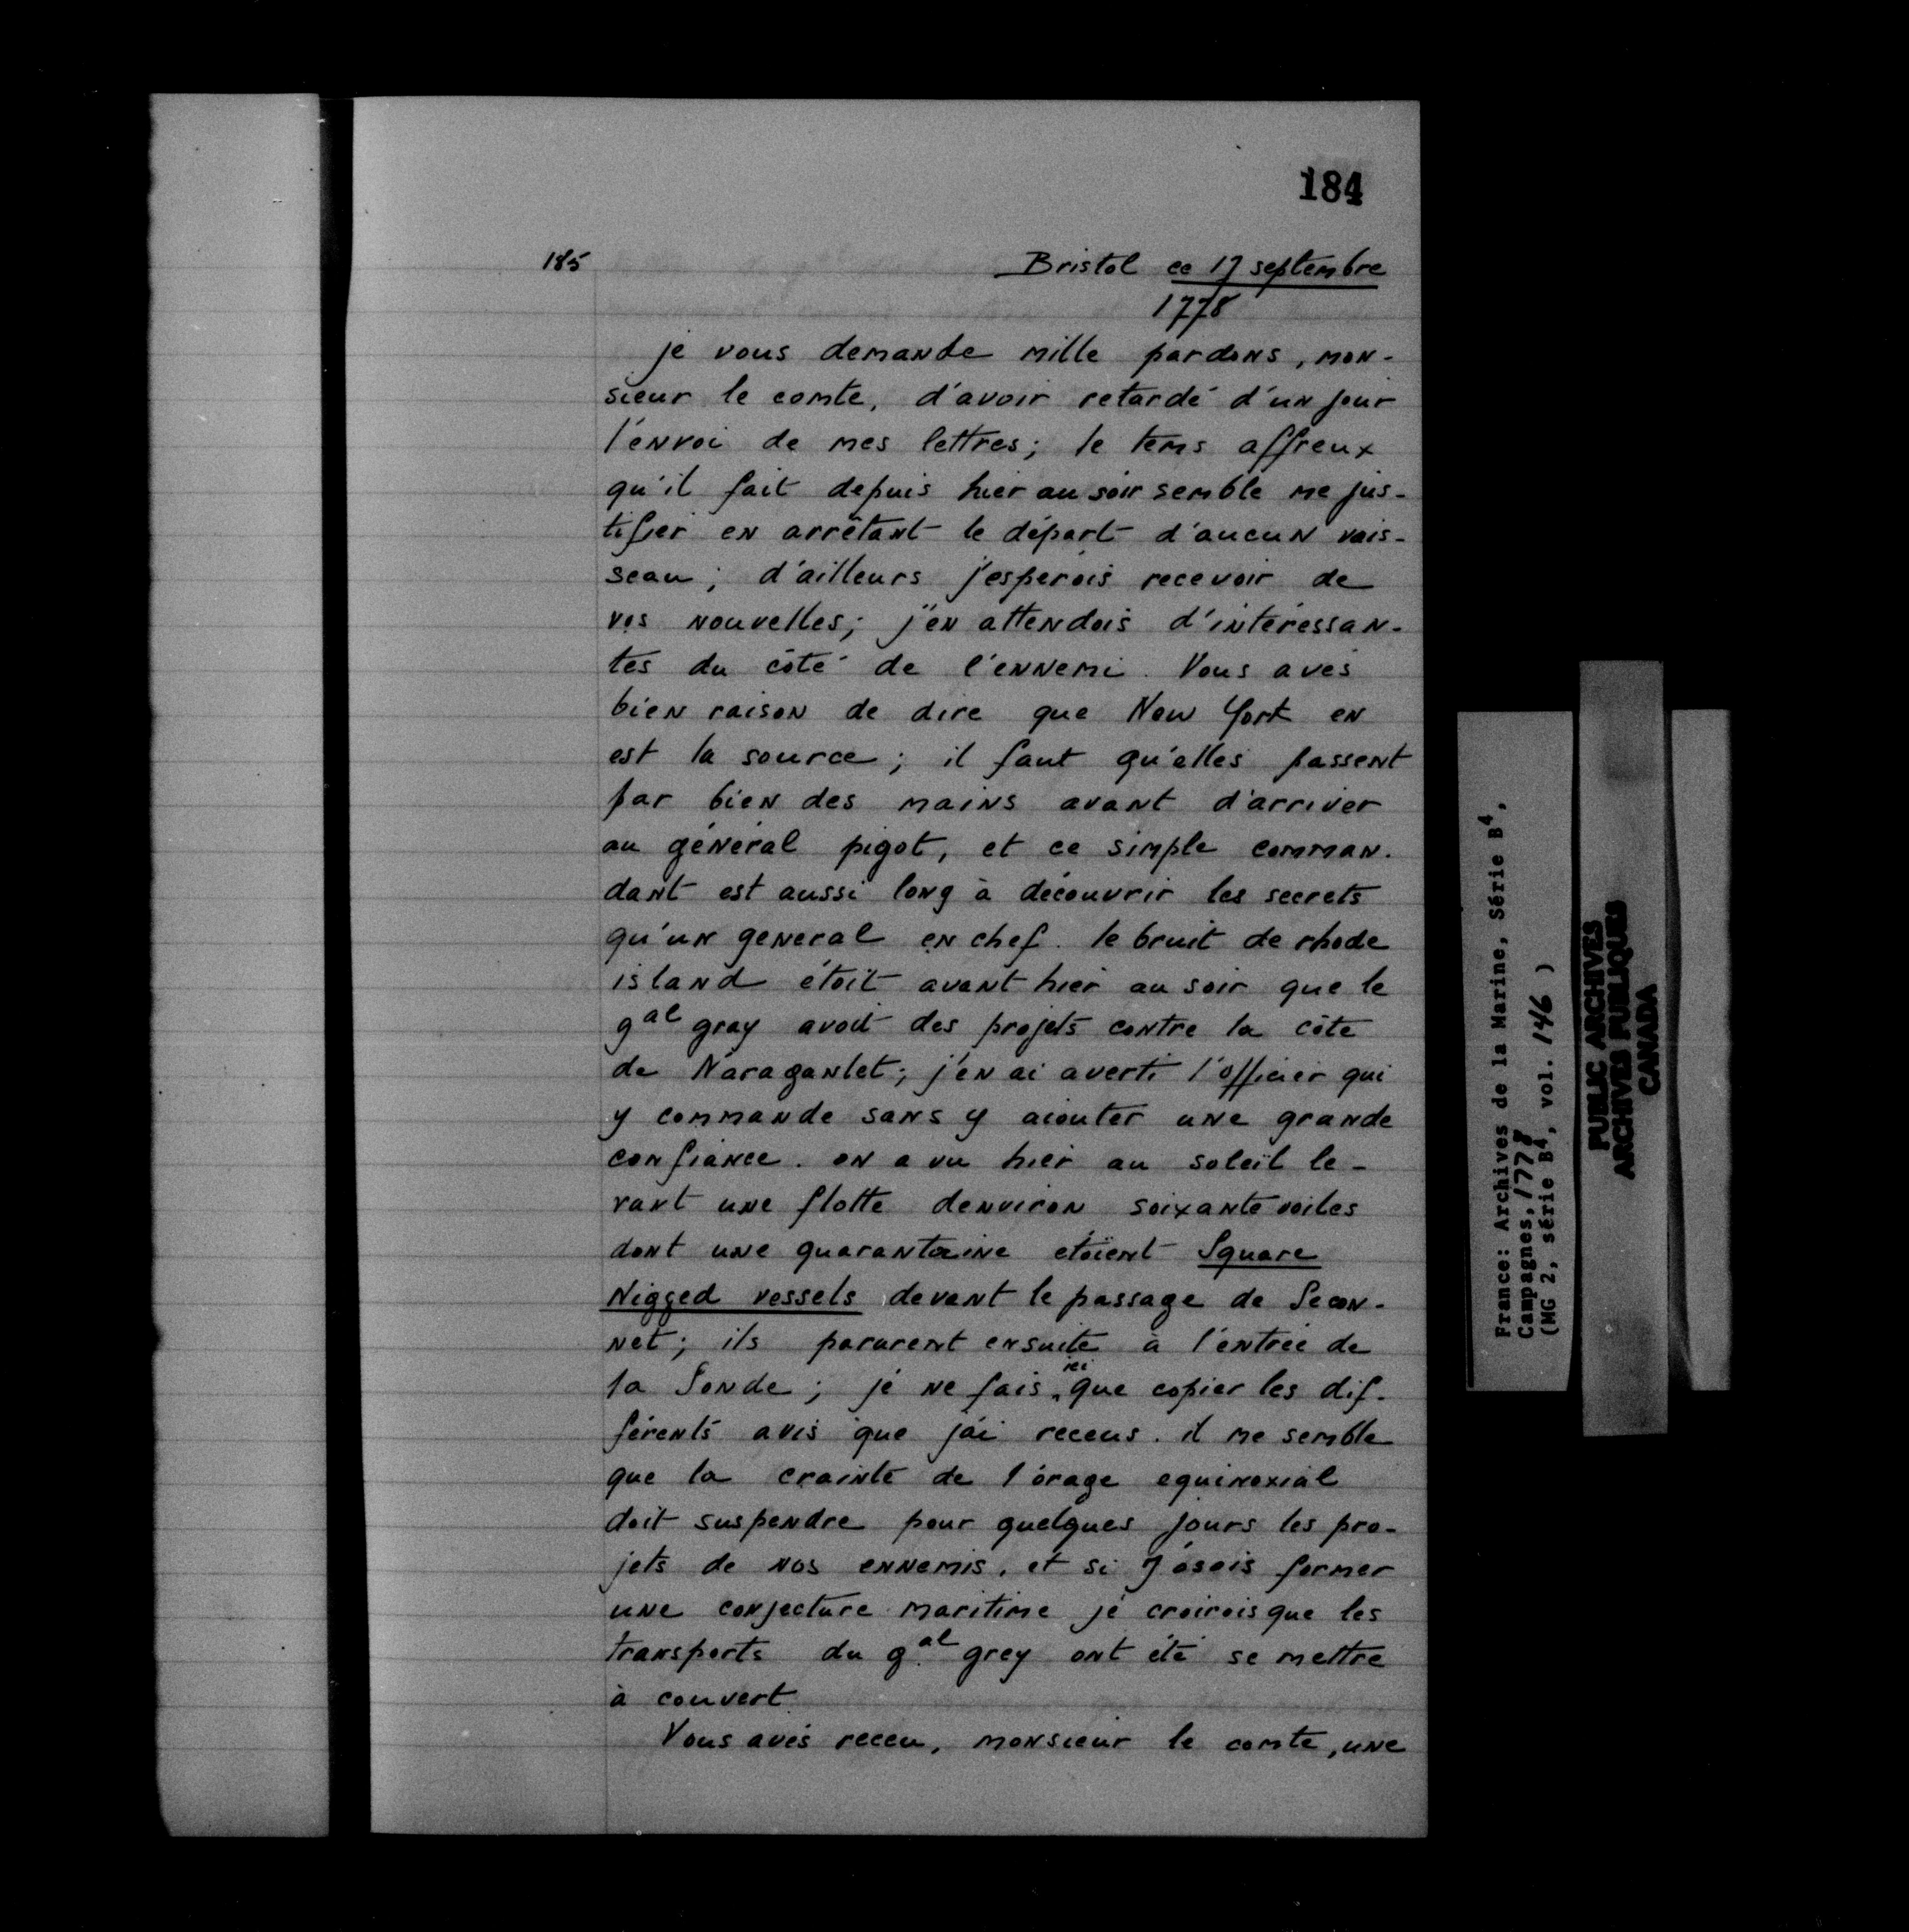 184
185
Bristol ce 17 septembre
1778
je vous demande mille pardons, mon-
sieur le comte, d'avoir retardé d'un jour
l'envoi de mes lettres; le tems affreux
qu'il fait depuis hier au soir semble me jus-
tifier en arrêtant le départ d'aucun vais-
seau; d'ailleurs j'esperois recevoir de
vos nouvelles; j'en attendois d'intéressan-
tes du côté de l'ennemi. Vous avés
bien raison de dire que New York en
est la source; il faut qu'elles passent
par bien des mains avant d'arriver
au général pigot, et ce simple comman-
dant est aussi long à découvrir les secrets
qu'un general en chef. le bruit de rhode
island étoit avant hier au soir que le
gal gray avoit des projets contre la côte
de Naraganlet; j'en ai averti l'officier qui
y commande sans y aiouter une grande
confiance. on a vu hier au soleil le-
vant une flotte denviron soixante voiles
dont une quarantaine etoient Square
Nigged vessels devant le passage de Secon-
net; ils parurent ensuite à l'entrée de
la Sonde; je ne fais ici que copier les dif-
férents avis que j'ai receus. il me semble
que la crainte de l'orage equinoxial
doit suspendre pour quelques jours les pro-
jets de nos ennemis, et si J'osois former
une conjecture maritime je croirois que les
transports du g.al grey ont été se mettre
à couvert.
Vous avés receu, monsieur le comte, une
France: Archives de la Marine, Série B4,
Campagnes, 1778
(MG 2, série B4, vol. 146 )
PUBLIC ARCHIVES
ARCHIVES PUBLIQUES
CANADA